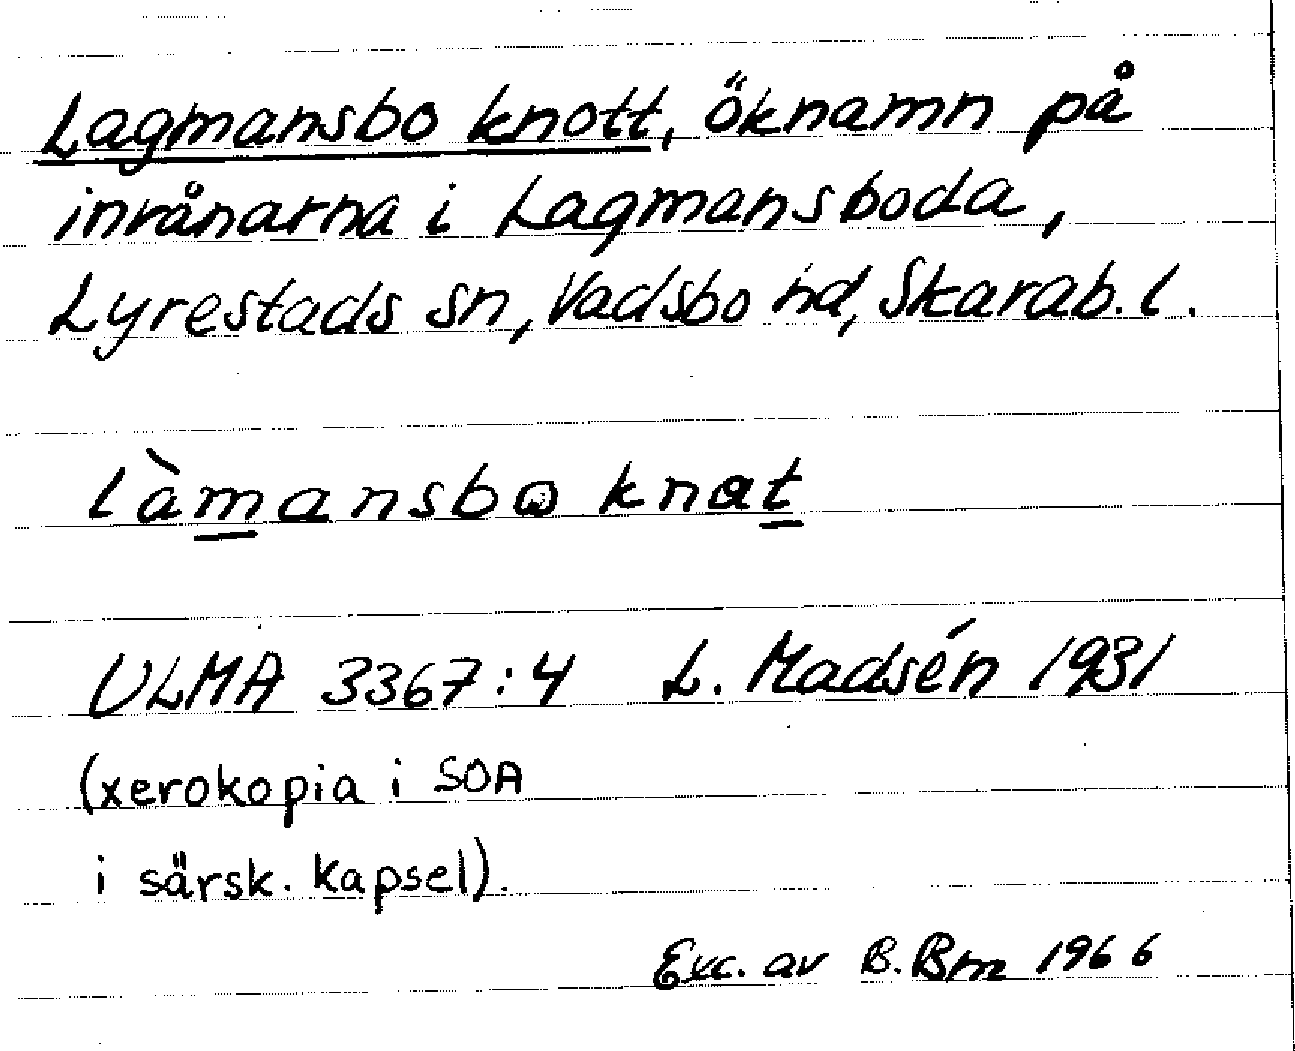 Lagmansbo knott, öknamn på
invånarna i Lagmansboda,
Lyrestads sn, Vadsbo hd, Skarab. l.
làmansbo knat
ULMA 3367:4 L. Madsén 1931
(xerokopia i SOA
i särsk. kapsel).
Exc. av B. Bm 1966